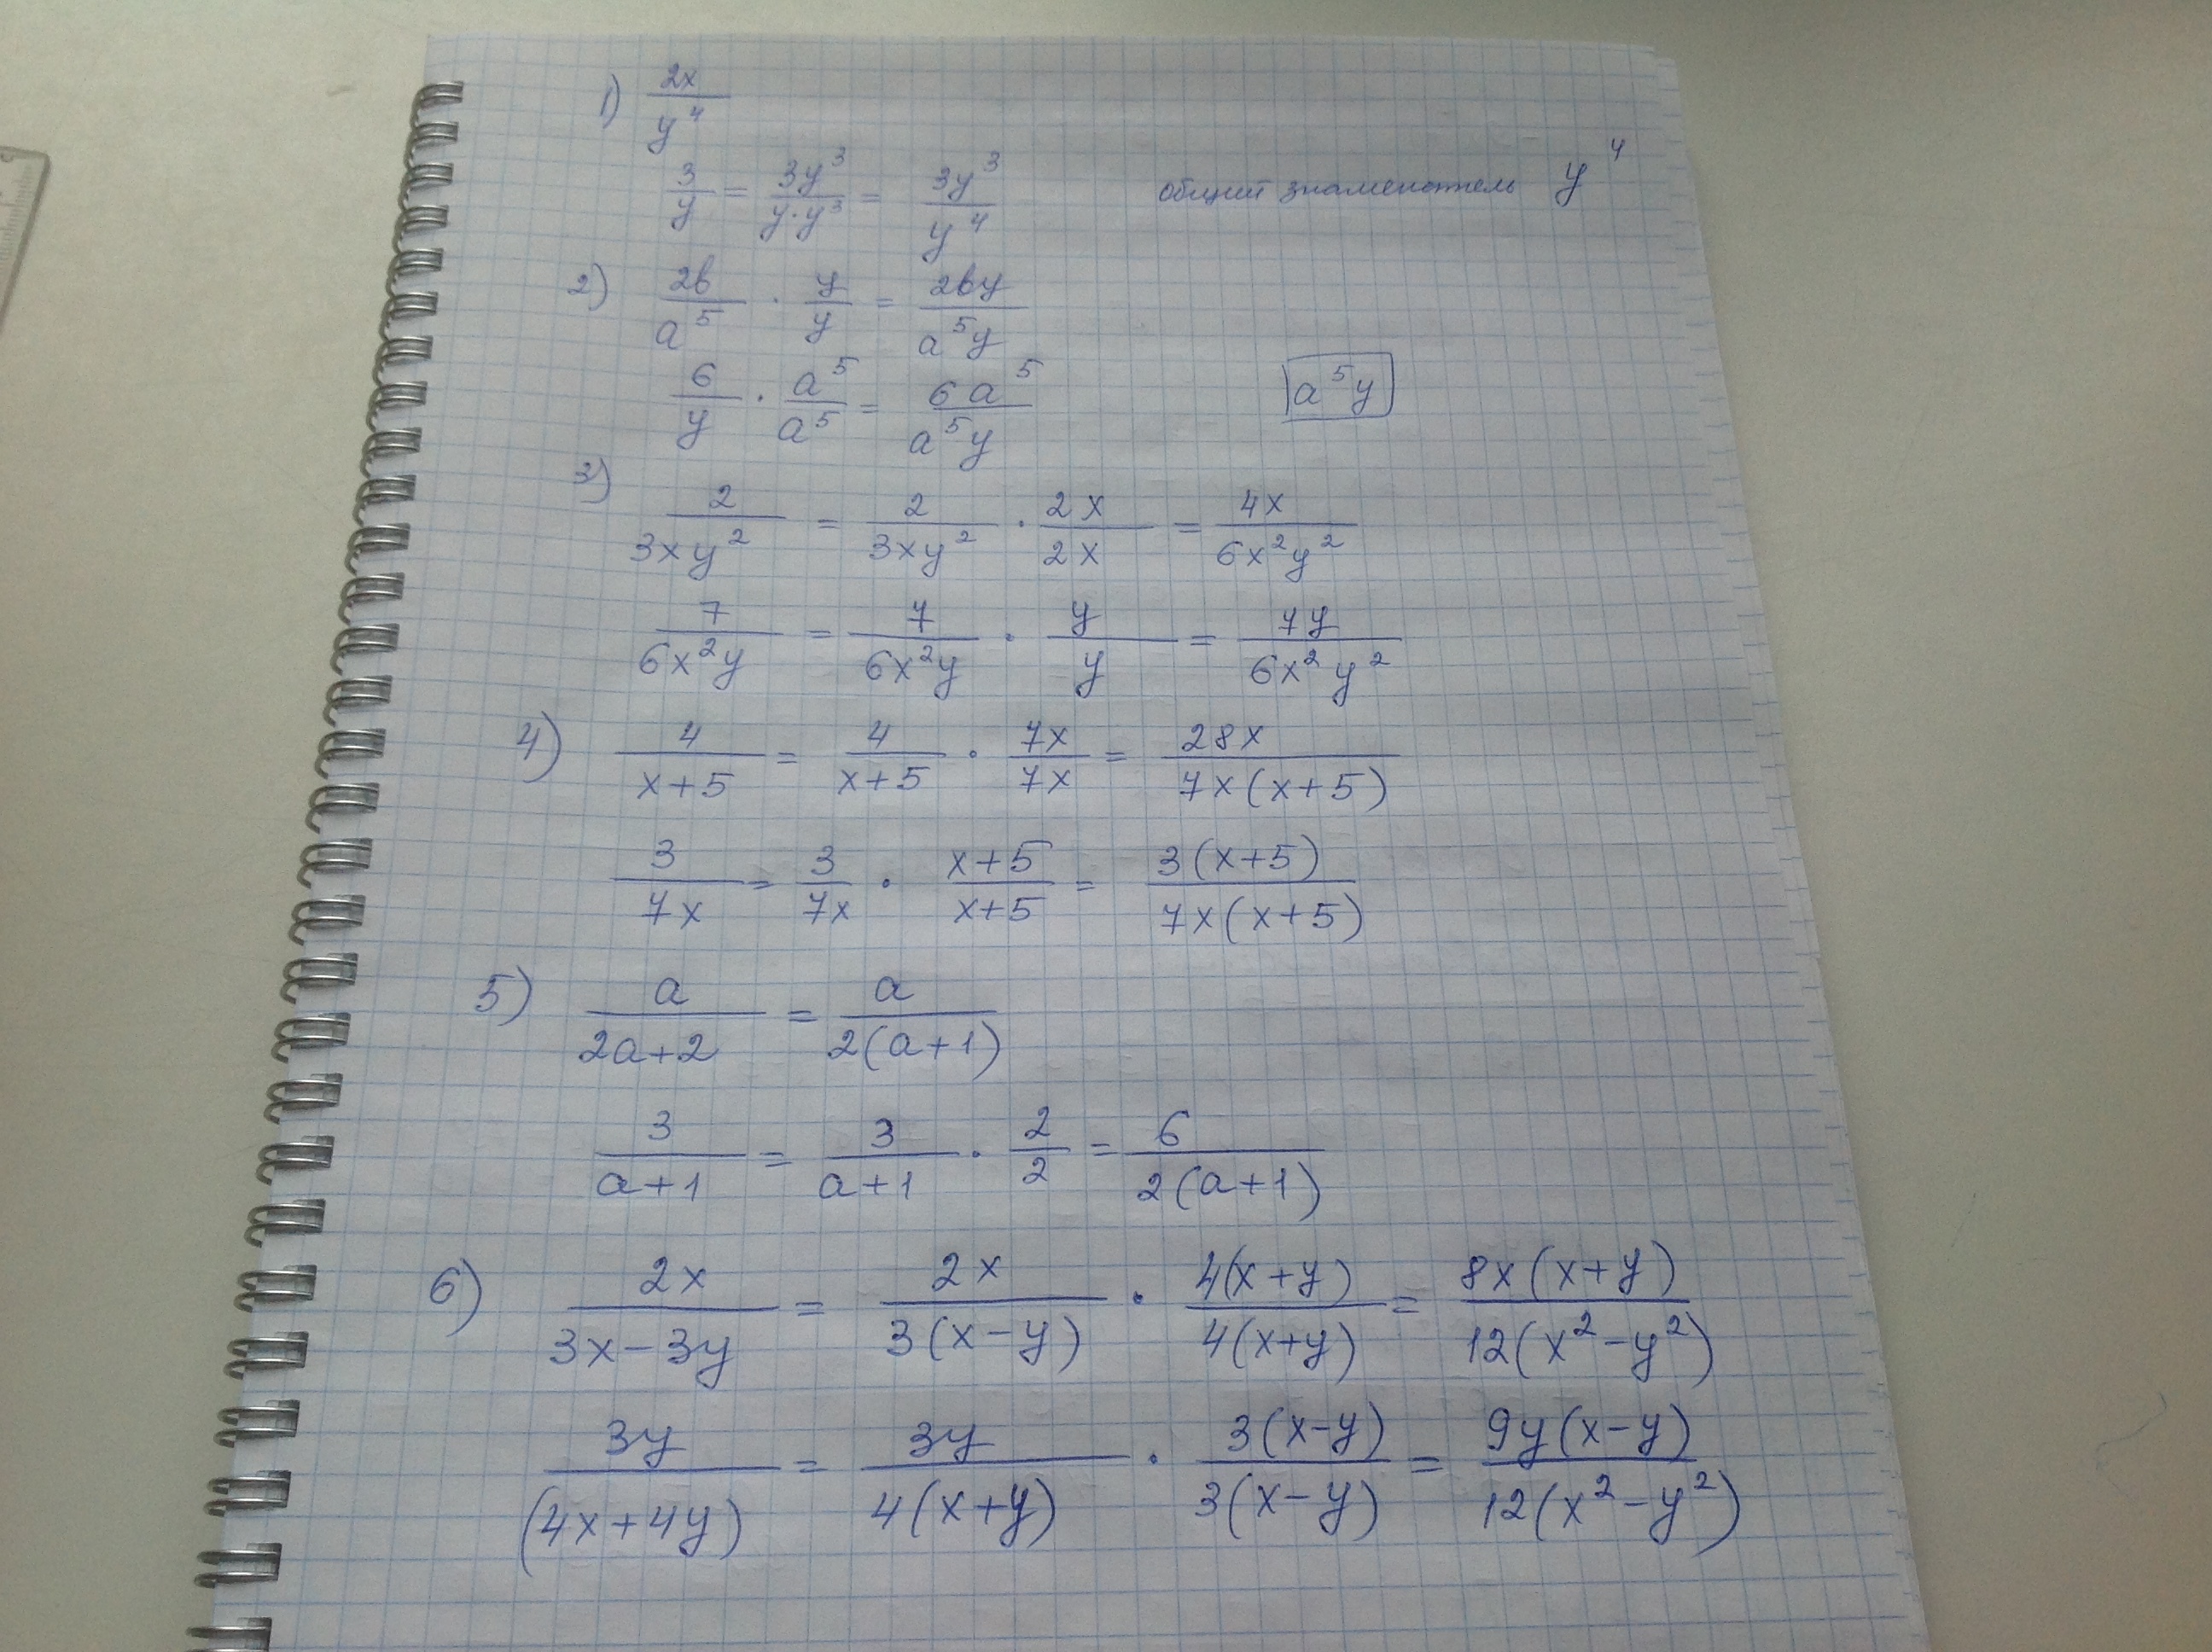 1) 2x/y⁴
3/y = 3y³/y·y³ = 3y³/y⁴ общий знаменатель y⁴
2) 2b/a⁵ · y/y = 2by/a⁵y
6/y · a⁵/a⁵ = 6a⁵/a⁵y a⁵y
3) 2/3xy² = 2/3xy² · 2x/2x = 4x/6x²y²
7/6x²y = 7/6x²y · y/y = 7y/6x²y²
4) 4/x+5 = 4/x+5 · 7x/7x = 28x/7x(x+5)
3/7x = 3/7x · x+5/x+5 = 3(x+5)/7x(x+5)
5) a/2a+2 = a/2(a+1)
3/a+1 = 3/a+1 · 2/2 = 6/2(a+1)
6) 2x/3x-3y = 2x/3(x-y) · 4(x+y)/4(x+y) = 8x(x+y)/12(x²-y²)
3y/(4x+4y) = 3y/4(x+y) · 3(x-y)/3(x-y) = 9y(x-y)/12(x²-y²)